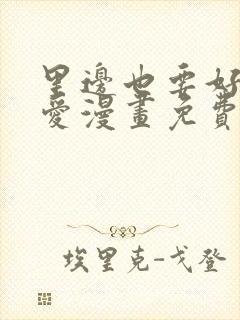 里邊也要好
愛漫畫免費
埃里克-戈登